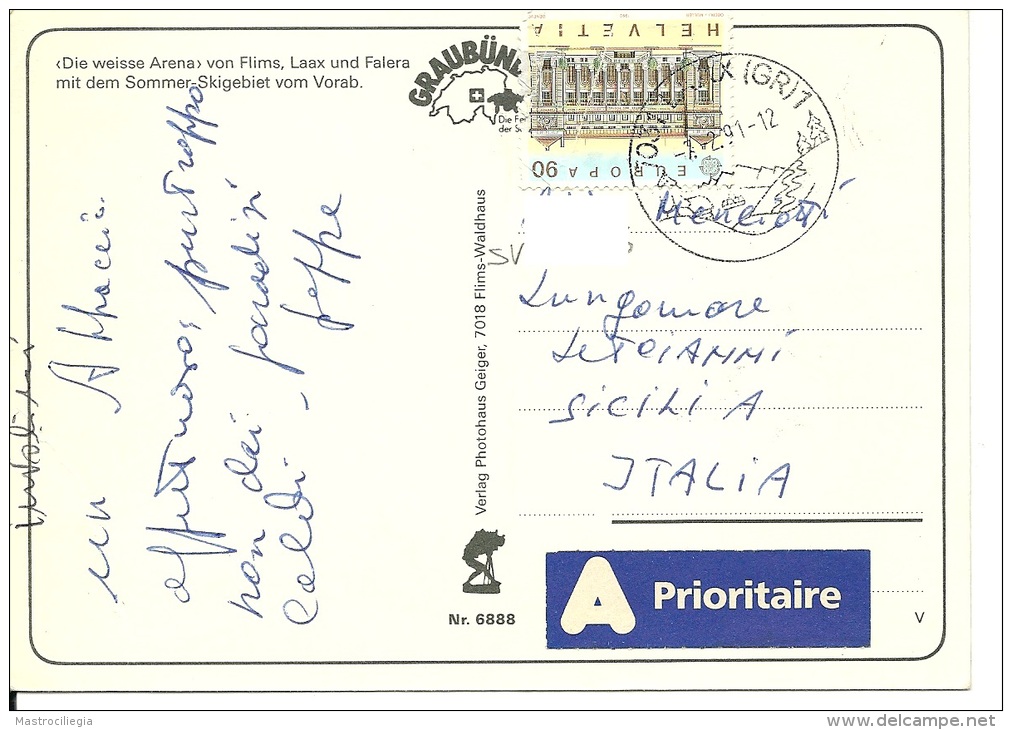 ‹Die weisse Arena› von Flims, Laax und Falera
mit dem Sommer-Skigebiet vom Vorab.
GRAUBÜN
Die Fe
der S
HELVETIA
EUROPA
90
(GR) 1
2.91-12
un Abbraccio
affettuoso; purtroppo
non dai paradisi
caldi - peppe
Verlag Photohaus Geiger, 7018 Flims-Waldhaus
Nr. 6888
SV
Lungomare
LETOIANNI
SICILIA
ITALIA
A Prioritaire
V
Mastrociliegia
www.delcampe.net